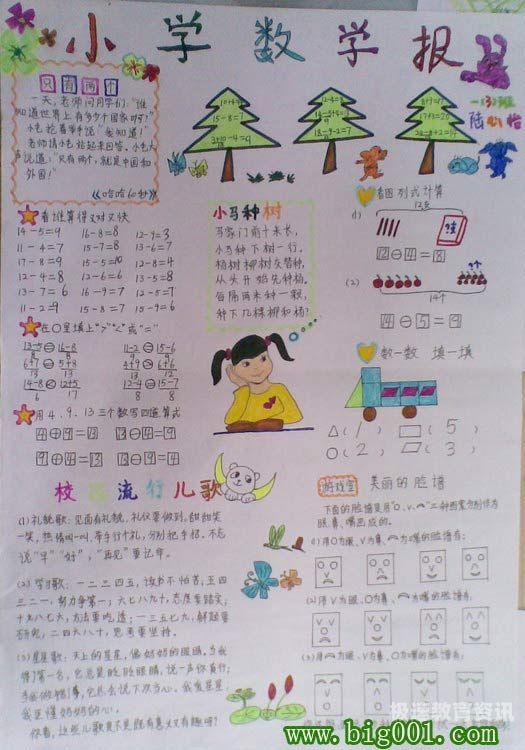 小学数学报
一(3)班
陆心怡
只有两个
一天,老师问同学们:"谁
知道世界上有多少个国家呀?"
小飞抢着举手说"我知道!"
老师请小飞站起来回答,小飞大
声说道:"只有两个,就是中国和
外国!"
《哈哈60秒》
看谁算得又对又快
14-5=9 16-8=8 12-9=3
11-4=7 15-7=8 13-6=7
17-8=9 15-5=10
12-4=8 12-6=6 13-5=8
13-7=6 16-9=7 12-7=5
11-2=9 15-8=7 15-9=6
在○里填上">""<"或"="
13-5 = 16-8
11-2 = 15-6
6+7 > 5+8
4+9 > 6+6
14-8 < 12+5
12-4 > 15-7
用4、9、13三个数写四道算式
4+9=13 13-9=4
9+4=13 13-4=9
小马种树
马家门前十米长,
小马种下树一行。
杨树柳树灰苔种,
从头开始先种杨,
每隔两米种一颗,
种下几棵柳和杨?
看图列式计算
(1)
12支
12-4=8
(2)
14个
14-5=9
数一数 填一填
△(1) ▱(5)
○(2) □(3)
校园流行儿歌
(1)礼貌歌:见面有礼貌,礼仪要做到,甜甜笑
一笑,热情叫一叫,
说"早""好","再见"要记牢。
(2)学习歌:一二三四五,读书不怕苦,五四
三二一,努力争第一;六七八九十,态度要踏实;
十九八七六,方法要吃透;一三五七九,解题要
研究,二四六八十,思考要坚持。
(3)星星歌:天上的星星,像妈妈的眼睛,当我
得了第一名,它总是眨眨眼睛,说一声你真行;
我是星星,
你看,这些儿歌是不是既有意义又有趣呢?
游戏宫
美丽的脸谱
下面的脸谱是用"O、V、⌒"三种图案分别作为
眼、鼻、嘴画成的。
(1)用O为眼、V为鼻、⌒为嘴的脸谱有:
(2)用V为眼、O为鼻、⌒为嘴的脸谱有:
(3)用⌒为眼、V为鼻、O为嘴的脸谱有:
极速教育资讯
www.big001.com